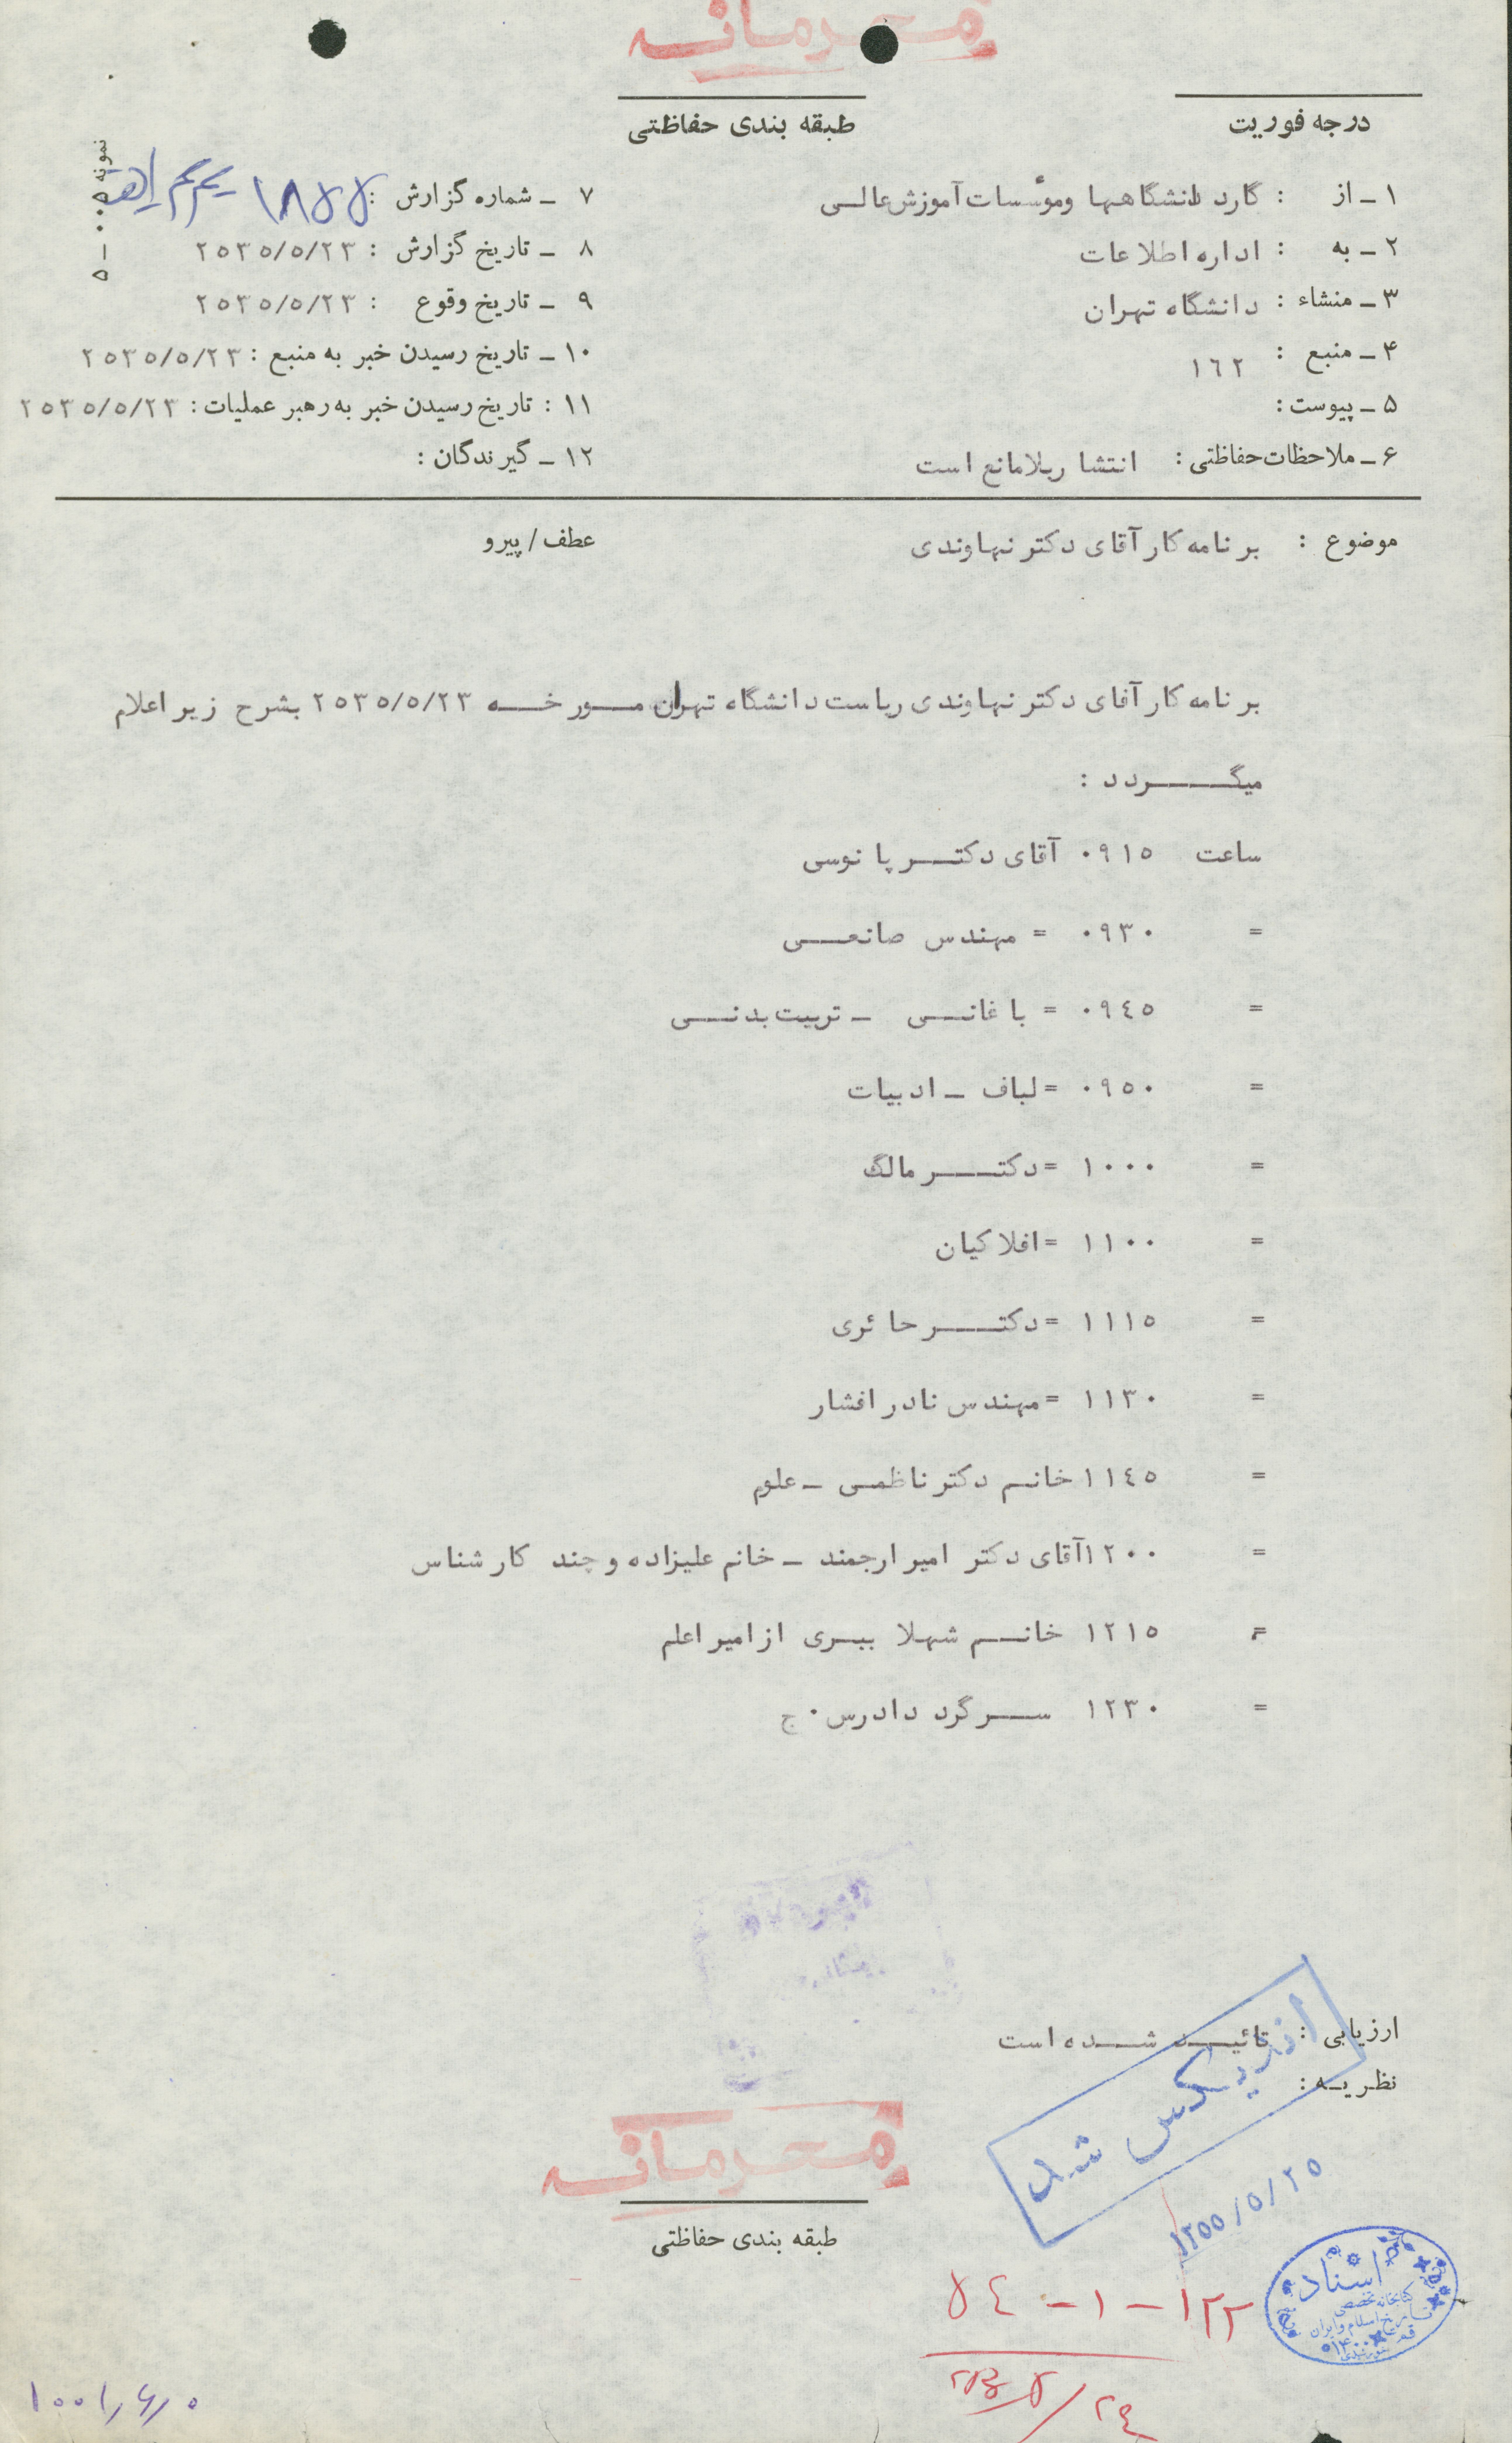 محرمانه
درجه فوریت
طبقه بندی حفاظتی
۱ ـ از : گارد دانشگاهها ومؤسسات آموزش عالی
۲ ـ به : اداره اطلاعات
۳ ـ منشاء : دانشگاه تهران
۴ ـ منبع : ۱۶۲
۵ ـ پیوست :
۶ ـ ملاحظات حفاظتی : انتشار بلامانع است
نمونه ۰۵ ـ ۵
۷ ـ شماره گزارش : ۱۸۵۵
۸ ـ تاریخ گزارش : ۲۵۳۵/۵/۲۳
۹ ـ تاریخ وقوع : ۲۵۳۵/۵/۲۳
۱۰ ـ تاریخ رسیدن خبر به منبع : ۲۵۳۵/۵/۲۳
۱۱ : تاریخ رسیدن خبر به رهبر عملیات : ۲۵۳۵/۵/۲۳
۱۲ ـ گیرندگان :
موضوع : برنامه کار آقای دکتر نهاوندی
عطف / پیرو
برنامه کار آقای دکتر نهاوندی ریاست دانشگاه تهران مورخه ۲۵۳۵/۵/۲۳ بشرح زیر اعلام
میگردد :
ساعت ۰۹۱۵ آقای دکتر پانوسی
= ۰۹۳۰ = مهندس صانعی
= ۰۹۴۵ = باغانی ـ تربیت بدنی
= ۰۹۵۰ = لباف ـ ادبیات
= ۱۰۰۰ = دکتر مالک
= ۱۱۰۰ = افلاکیان
= ۱۱۱۵ = دکتر حائری
= ۱۱۳۰ = مهندس نادر افشار
= ۱۱۴۵ خانم دکتر ناظمی ـ علوم
= ۱۲۰۰ آقای دکتر امیر ارجمند ـ خانم علیزاده و چند کارشناس
= ۱۲۱۵ خانم شهلا ببری از امیر اعلم
= ۱۲۳۰ سرگرد دادرس ۰ ج
ارزیابی : تائید شده است
نظریه :
ایندیکس شد
۱۳۵۵/۵/۲۵
محرمانه
طبقه بندی حفاظتی
۱۲۲ - ۱ - ۵۴
اسناد
کتابخانه تخصصی
تاریخ اسلام و ایران
قم